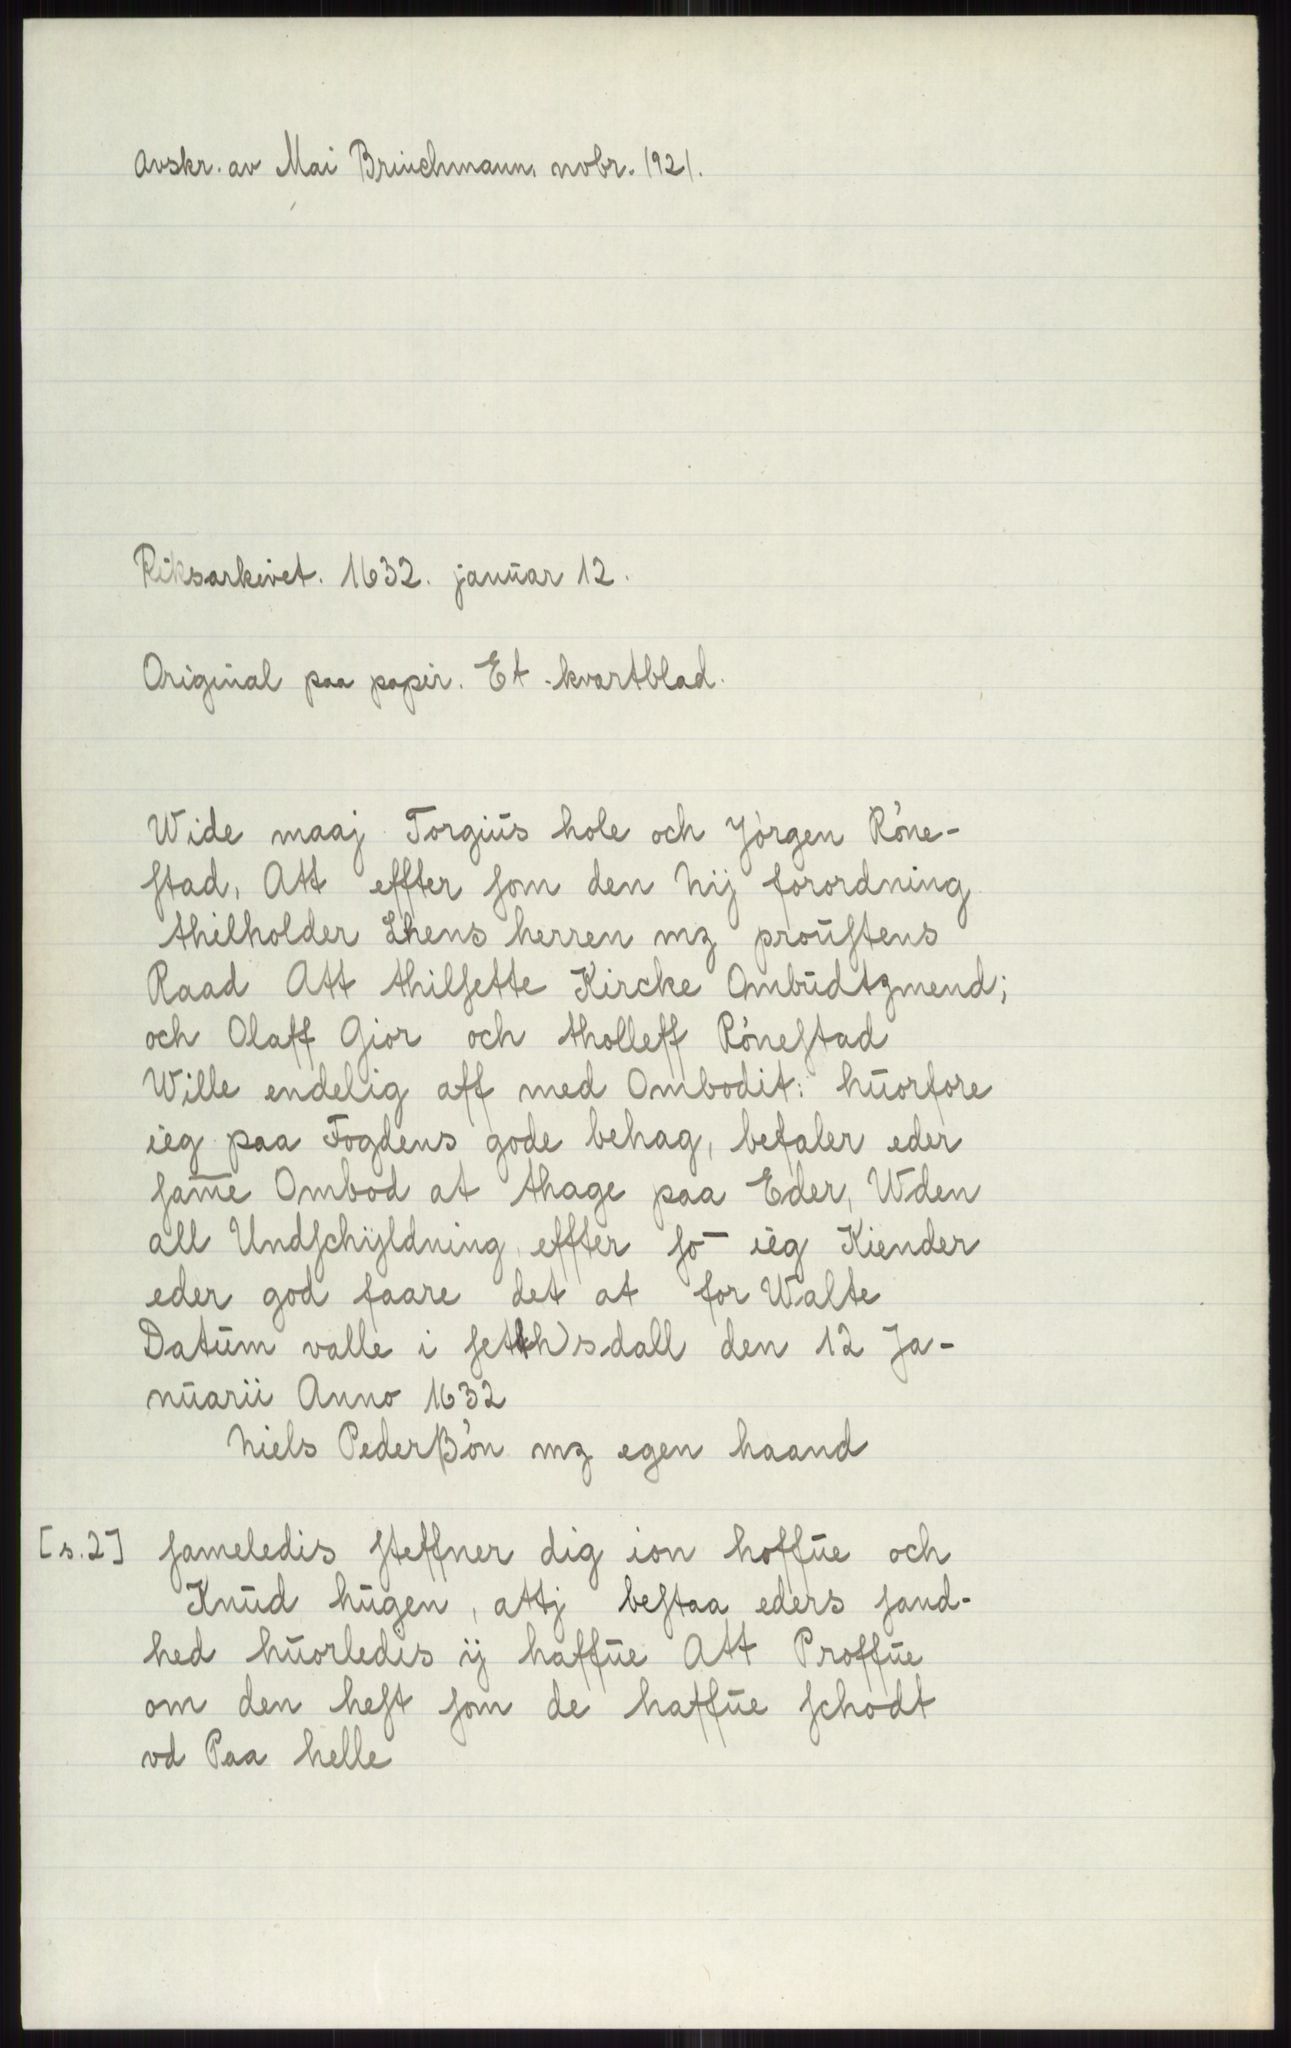 Avskr. av Mai Brinchmann, nobr. 1921.
Riksarkivet. 1632. januar 12.
Original paa papir. Et kvartblad.
Wide maaj Torgius hole och Jörgen Röne-
ſtad, Att effter ſom den Nij forordning
thilholder Lhens herren mz prouſtens
Raad Att thilſette Kircke Ombudtzmend;
och Olaff Gior och tholleff Röneſtad
Wille endelig aff med Ombodit: huorfore
ieg paa Fogdens gode behag, befaler eder
ſam̅e Ombod at thage paa Eder, Wden
all Undſchijldning effter ſo̅ ieg Kiender
eder god faare det at for Walte
Datum valle i ſet(h)sdall den 12 Ja-
nuarii Anno 1632
Niels Pederßön mz egen haand
[s. 2] ſameledis ſteffner dig ion hoffue och
Knud hugen, attj beſtaa eders ſand-
hed huorledis ij haffue Att Proffue
om den heſt ſom de haffue ſchodt
vd Paa helle